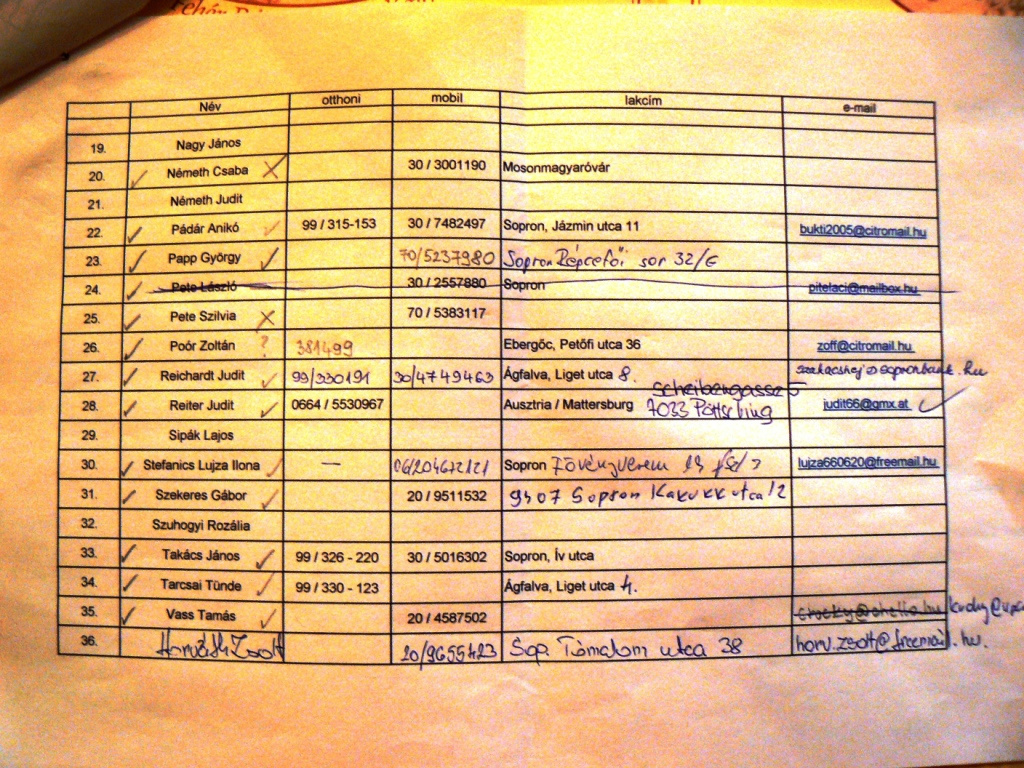 Név otthoni mobil lakcím e-mail
19. Nagy János
20. Németh Csaba 30 / 3001190 Mosonmagyaróvár
21. Németh Judit
22. Pádár Anikó 99 / 315-153 30 / 7482497 Sopron, Jázmin utca 11 bukti2005@citromail.hu
23. Papp György 70/5237980 Sopron Répcefői sor 32/E
24. Pete László 30 / 2557880 Sopron pitelaci@mailbox.hu
25. Pete Szilvia 70 / 5383117
26. Poór Zoltán ? 381499 Ebergőc, Petőfi utca 36 zoff@citromail.hu
27. Reichardt Judit 99/330191 30/4749463 Ágfalva, Liget utca 8.
Scheibengasse 5
28. Reiter Judit 0664 / 5530967 Ausztria / Mattersburg 7033 Pöttsching judit66@gmx.at
29. Sipák Lajos
30. Stefanics Lujza Ilona — 06/204672121 Sopron lujza660620@freemail.hu
31. Szekeres Gábor 20 / 9511532 9407 Sopron Kakukk utca 12
32. Szuhogyi Rozália
33. Takács János 99 / 326 - 220 30 / 5016302 Sopron, Ív utca
34. Tarcsai Tünde 99 / 330 - 123 Ágfalva, Liget utca 4.
35. Vass Tamás 20 / 4587502
36. Horváth Zsolt 20/9655423 Sop. Tómalom utca 38 horv.zsolt@freemail.hu.